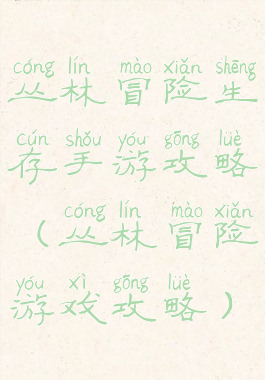 cóng lín mào xiǎn shēng
丛林冒险生
cún shǒu yóu gōng lüè
存手游攻略
cóng lín mào xiǎn
（丛林冒险
yóu xì gōng lüè
游戏攻略）